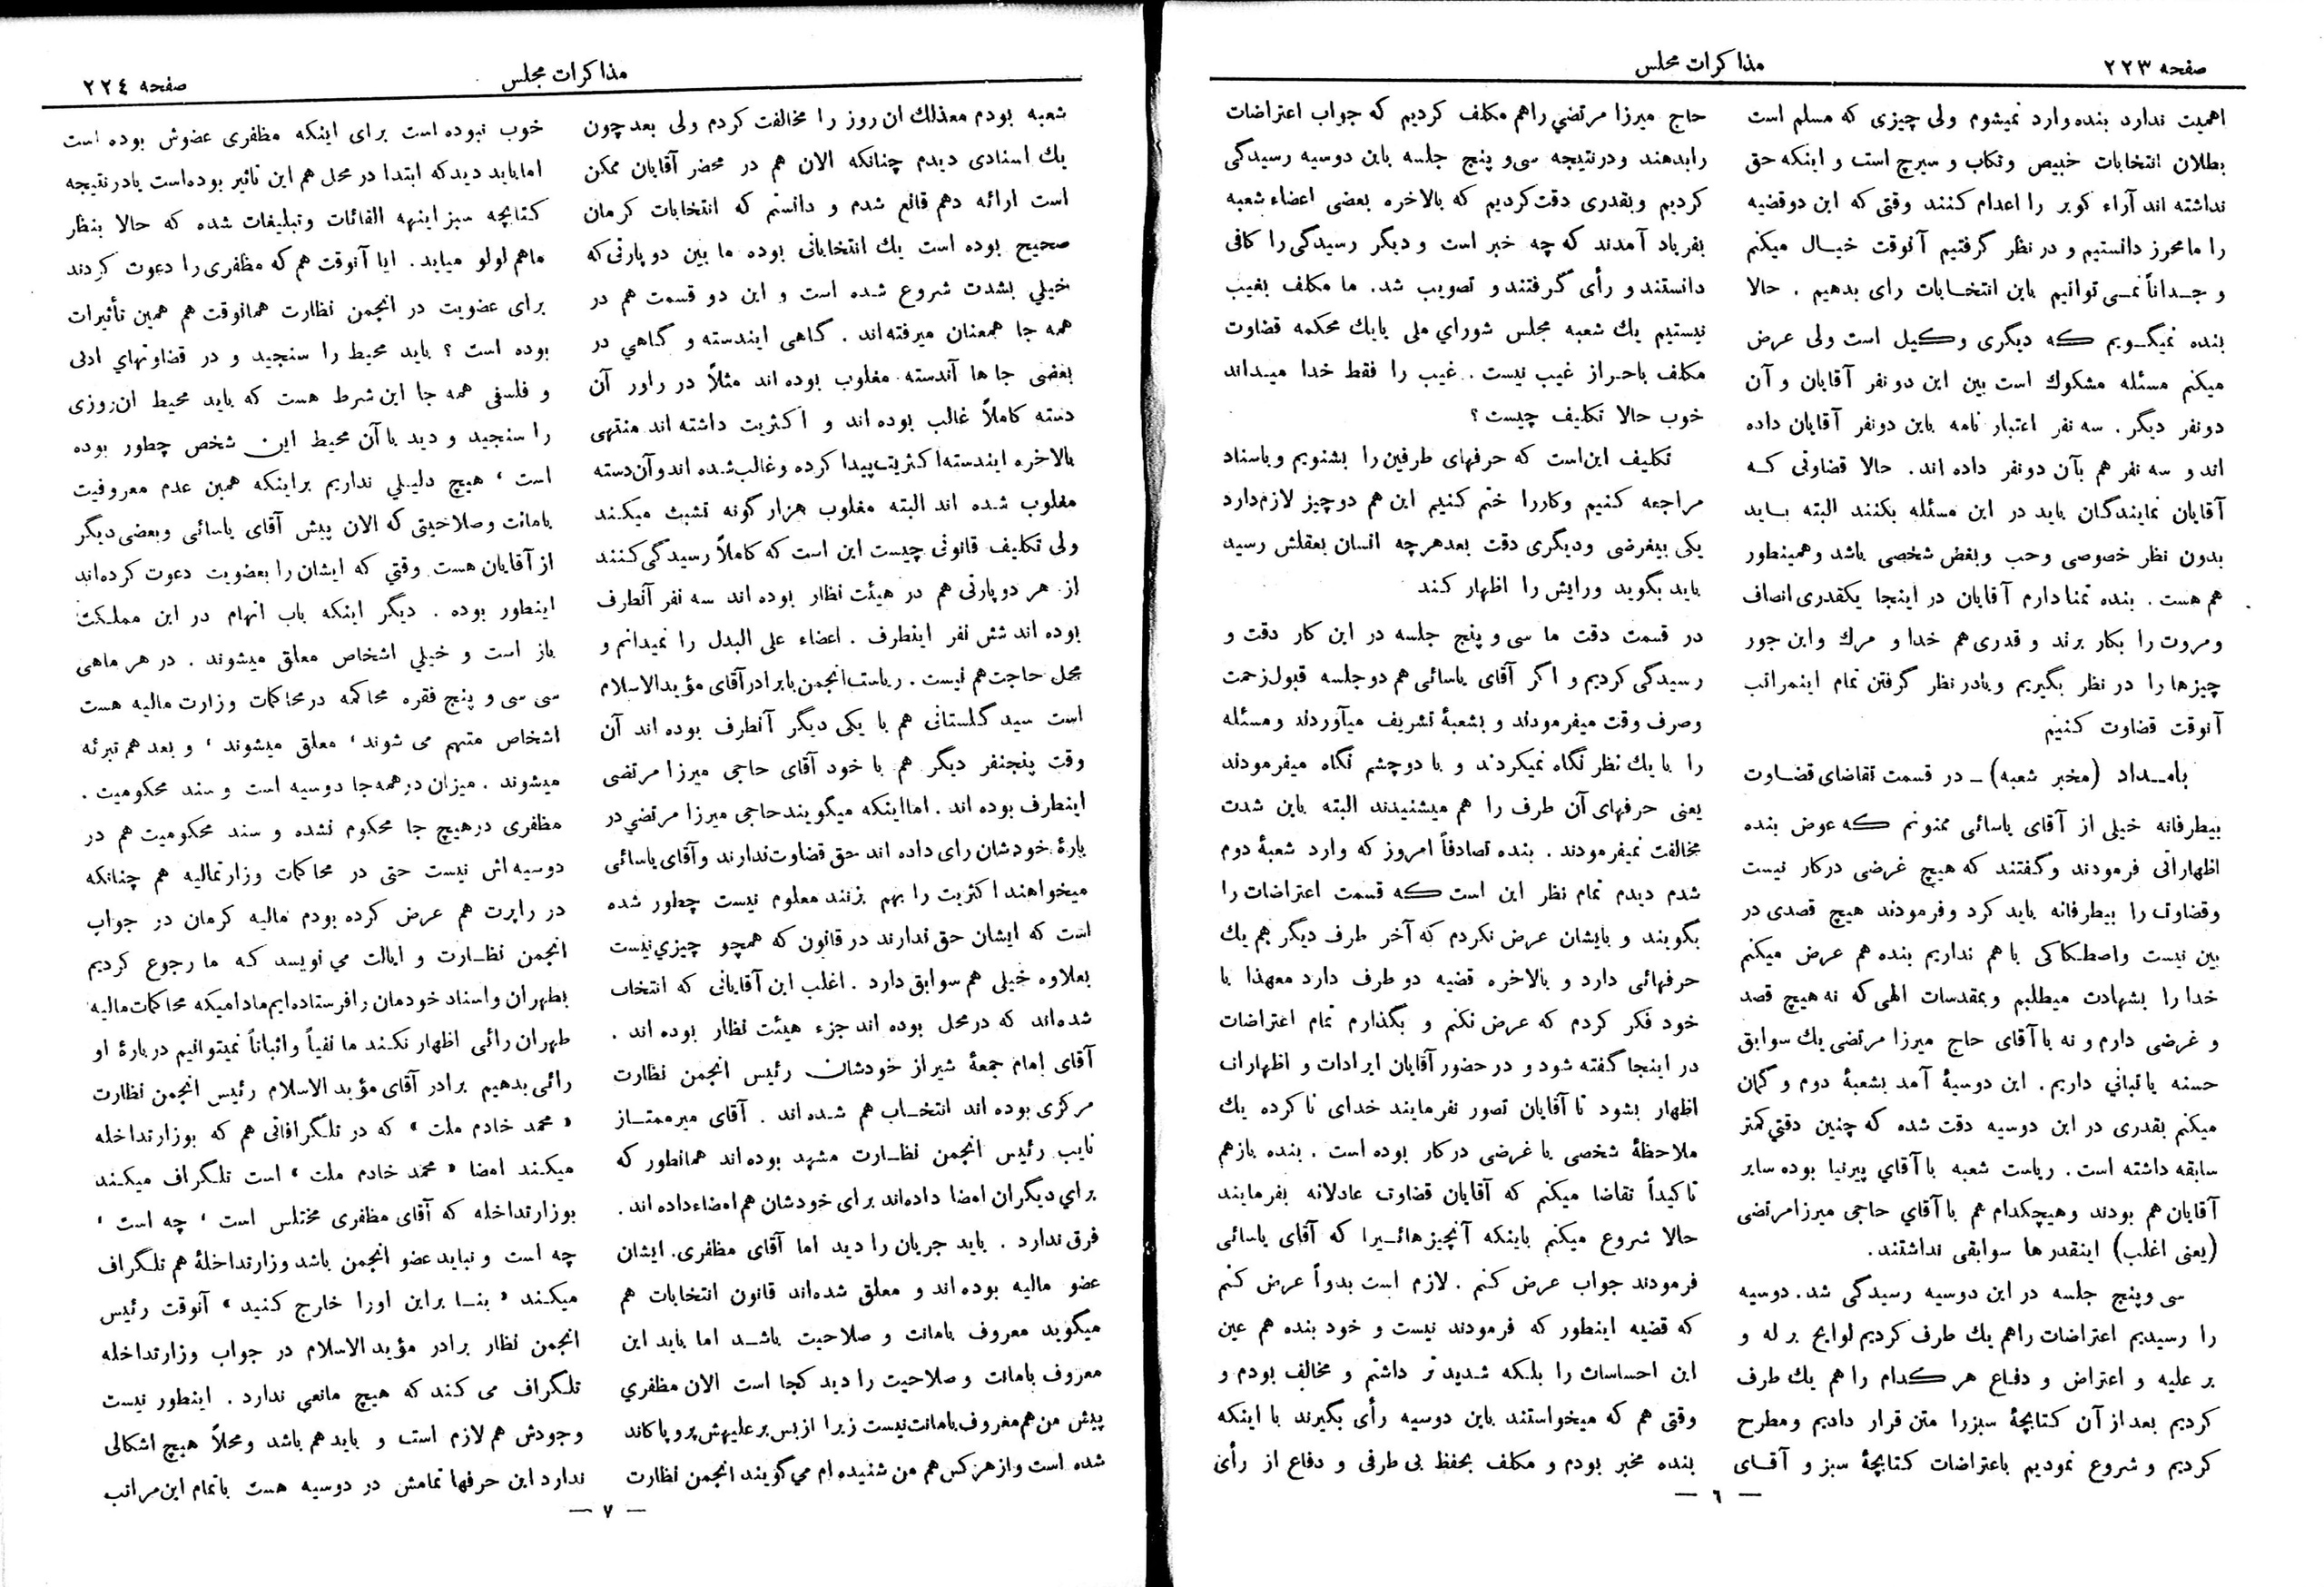 صفحه ۲۲۳
مذاكرات مجلس
اهمیت ندارد بنده وارد نمیشوم ولی چیزی که مسلم است
بطلان انتخابات خبیص وتکاب و سیرچ است و اینکه حق
نداشته اند آراء کویر را اعدام کنند وقتی که این دوقضیه
را ما محرز دانستیم و در نظر گرفتیم آنوقت خیال میکنم
وجداناً نمی توانیم باین انتخابات رای بدهیم . حالا
بنده نمیگویم که دیگری وکیل است ولی عرض
میکنم مسئله مشکوك است بین این دو نفر آقایان و آن
دونفر دیگر . سه نفر اعتبار نامه باین دونفر آقایان داده
اند و سه نفر هم بآن دونفر داده اند. حالا قضاوتی که
آقایان نمایندگان باید در این مسئله بکنند البته باید
بدون نظر خصوصی وحب وبغض شخصی باشد وهمینطور
هم هست . بنده تمنا دارم آقایان در اینجا یکقدری انصاف
ومروت را بکار برند و قدری هم خدا و مرك واین جور
چیزها را در نظر بگیریم وبادر نظر گرفتن تمام اینمراتب
آنوقت قضاوت کنیم
بامداد (مخبر شعبه) ـ در قسمت تقاضای قضاوت
بیطرفانه خیلی از آقای یاسائی ممنونم که عوض بنده
اظهاراتی فرمودند وگفتند که هیچ غرضی درکار نیست
وقضاوت را بیطرفانه باید کرد وفرمودند هیچ قصدی در
بین نیست واصطکاکی باهم نداریم بنده هم عرض میکنم
خدا را بشهادت میطلبم وبمقدسات الهی که نه هیچ قصد
و غرضی دارم و نه با آقای حاج میرزا مرتضی یك سوابق
حسنه یا تبانی داریم. این دوسیهٔ آمد بشعبهٔ دوم و گمان
میکنم بقدری در این دوسیه دقت شده که چنین دقتی کمتر
سابقه داشته است . ریاست شعبه با آقاي پیرنیا بوده سایر
آقایان هم بودند وهیچکدام هم با آقاي حاجی میرزامرتضی
(یعنی اغلب) اینقدرها سوابقی نداشتند.
سی وپنج جلسه در این دوسیه رسیدگی شد. دوسیه
را رسیدیم اعتراضات راهم یك طرف کردیم لوایح بر له و
بر علیه و اعتراض و دفاع هر کدام را هم یك طرف
کردیم بعد از آن کتابچهٔ سبزرا متن قرار دادیم ومطرح
کردیم و شروع نمودیم باعتراضات کتابچهٔ سبز و آقای
حاج میرزا مرتضي راهم مکلف کردیم که جواب اعتراضات
رابدهند ودرنتیجه سی و پنج جلسه باین دوسیه رسیدگی
کردیم وبقدری دقت کردیم که بالاخره بعضی اعضاء شعبه
بفریاد آمدند که چه خبر است و دیگر رسیدگی را کافی
دانستند و رأی گرفتند و تصویب شد. ما مکلف بغیب
نیستیم یك شعبه مجلس شوراي ملی یایك محکمه قضاوت
مکلف باحراز غیب نیست . غیب را فقط خدا میداند
خوب حالا تکلیف چیست ؟
تکلیف این است که حرفهای طرفین را بشنویم وباسناد
مراجعه کنیم وکاررا ختم کنیم این هم دوچیز لازم دارد
یکی بیغرضی ودیگری دقت بعدهرچه انسان بعقلش رسید
باید بگوید ورایش را اظهار کند
در قسمت دقت ما سی و پنج جلسه در این کار دقت و
رسیدگی کردیم و اگر آقای یاسائی هم دوجلسه قبول زحمت
وصرف وقت میفرمودند و بشعبهٔ تشریف میآوردند ومسئله
را با یك نظر نگاه نمیکردند و با دو چشم نگاه میفرمودند
یعنی حرفهای آن طرف را هم میشنیدند البته باین شدت
مخالفت نمیفرمودند . بنده تصادفاً امروز که وارد شعبهٔ دوم
شدم دیدم تمام نظر این است که قسمت اعتراضات را
بگویند و بایشان عرض نکردم که آخر طرف دیگر هم یك
حرفهائی دارد و بالاخره قضیه دو طرف دارد معهذا با
خود فکر کردم که عرض نکنم و بگذارم تمام اعتراضات
در اینجا گفته شود و در حضور آقایان ایرادات و اظهارات
اظهار بشود تا آقایان تصور نفرمایند خدای نا کرده یك
ملاحظهٔ شخصی یا غرضی درکار بوده است . بنده بازهم
تاکیداً تقاضا میکنم که آقایان قضاوت عادلانه بفرمایند
حالا شروع میکنم باینکه آنچیزهائیرا که آقای یاسائی
فرمودند جواب عرض کنم . لازم است بدواً عرض کنم
که قضیه اینطور که فرمودند نیست و خود بنده هم عین
این احساسات را بلکه شدیدتر داشتم و مخالف بودم و
وقتی هم که میخواستند باین دوسیه رأی بگیرند با اینکه
بنده مخبر بودم و مکلف بحفظ بی طرفی و دفاع از رأی
— ٦ —
مذاكرات مجلس
صفحه ٢٢٤
شعبه بودم معذلك ان روز را مخالفت کردم ولی بعد چون
یك اسنادی دیدم چنانکه الان هم در محضر آقایان ممکن
است ارائه دهم قانع شدم و دانستم که انتخابات کرمان
صحیح بوده است یك انتخاباتی بوده ما بین دو پارتی که
خیلي بشدت شروع شده است و این دو قسمت هم در
همه جا همعنان میرفته اند . گاهی ایندسته و گاهي در
بعضی جاها آندسته مغلوب بوده اند مثلاً در راور آن
دسته کاملاً غالب بوده اند و اکثریت داشته اند منتهی
بالاخره ایندسته اکثریت پیدا کرده وغالب شده اند وآن دسته
مغلوب شده اند البته مغلوب هزار گونه تشبث میکند
ولی تکلیف قانونی چیست این است که کاملاً رسیدگی کنند
از هر دو پارتی هم در هیئت نظار بوده اند سه نفر آنطرف
بوده اند شش نفر اینطرف . اعضاء علی البدل را نمیدانم و
محل حاجت هم نیست . ریاست انجمن با برادر آقای مؤیدالاسلام
است سید گلستانی هم با یکی دیگر آنطرف بوده اند آن
وقت پنجنفر دیگر هم با خود آقای حاجی میرزا مرتضی
اینطرف بوده اند . اما اینکه میگویند حاجی میرزا مرتضي در
بارهٔ خودشان رای داده اند حق قضاوت ندارند و آقای یاسائی
میخواهند اکثریت را بهم بزنند معلوم نیست چطور شده
است که ایشان حق ندارند در قانون که همچو چیزي نیست
بعلاوه خیلی هم سوابق دارد . اغلب این آقایانی که انتخاب
شده اند که در محل بوده اند جزء هیئت نظار بوده اند .
آقای امام جمعهٔ شیراز خودشان رئیس انجمن نظارت
مرکزی بوده اند انتخاب هم شده اند . آقای میرممتاز
نایب رئیس انجمن نظارت مشهد بوده اند همانطور که
براي دیگران امضا داده‌اند برای خودشان هم امضاء داده اند .
فرق ندارد . باید جریان را دید اما آقای مظفری. ایشان
عضو مالیه بوده اند و معلق شده‌اند قانون انتخابات هم
میگوید معروف بامانت و صلاحیت باشد اما باید این
معروف بامانت و صلاحیت را دید کجا است الان مظفري
پیش من هم معروف بامانت نیست زیرا از بس بر علیهش پروپاکاند
شده است و از هر کس هم من شنیده ام مي گویند انجمن نظارت
خوب نبوده است برای اینکه مظفری عضوش بوده است
اما باید دید که ابتدا در محل هم این تاثیر بوده است یا در نتیجه
کتابچه سبز اینهمه القائات وتبلیغات شده که حالا بنظر
ماهم لولو میاید . ایا آنوقت هم که مظفری را دعوت کردند
برای عضویت در انجمن نظارت همانوقت هم همین تأثیرات
بوده است ؟ باید محیط را سنجید و در قضاوتهاي ادبی
و فلسفی همه جا این شرط هست که باید محیط ان روزی
را سنجید و دید با آن محیط این شخص چطور بوده
است ، هیچ دلیلي نداریم براینکه همین عدم معروفیت
بامانت وصلاحیتی که الان پیش آقای یاسائی وبعضی دیگر
از آقایان هست وقتي که ایشان را بعضویت دعوت کرده‌اند
اینطور بوده . دیگر اینکه باب اتهام در این مملکت
باز است و خیلي اشخاص معلق میشوند . در هر ماهی
سی سی و پنج فقره محاکمه در محاکمات وزارت مالیه هست
اشخاص متهم می شوند ، معلق میشوند ، و بعد هم تبرئه
میشوند . میزان در همه جا دوسیه است و سند محکومیت .
مظفری در هیچ جا محکوم نشده و سند محکومیت هم در
دوسیه اش نیست حتی در محاکمات وزارتمالیه هم چنانکه
در راپرت هم عرض کرده بودم مالیه کرمان در جواب
انجمن نظارت و ایالت مي نویسد که ما رجوع کردیم
بطهران واسناد خودمان رافرستاده ایم مادامیکه محاکمات مالیه
طهران رائی اظهار نکند ما نفیاً واثباتاً نمیتوانیم دربارهٔ او
رائی بدهیم برادر آقای مؤید الاسلام رئیس انجمن نظارت
« محمد خادم ملت » که در تلگرافاتی هم که بوزارتداخله
میکند امضا « محمد خادم ملت » است تلگراف میکند
بوزارتداخله که آقای مظفری مختلس است ، چه است ،
چه است و نباید عضو انجمن باشد وزارتداخلهٔ هم تلگراف
میکند « بنا براین اورا خارج کنید » آنوقت رئیس
انجمن نظار برادر مؤید الاسلام در جواب وزارتداخله
تلگراف می کند که هیچ مانعی ندارد . اینطور نیست
وجودش هم لازم است و باید هم باشد ومحلاً هیچ اشکالی
ندارد این حرفها تمامش در دوسیه هست باتمام این مراتب
— ٧ —